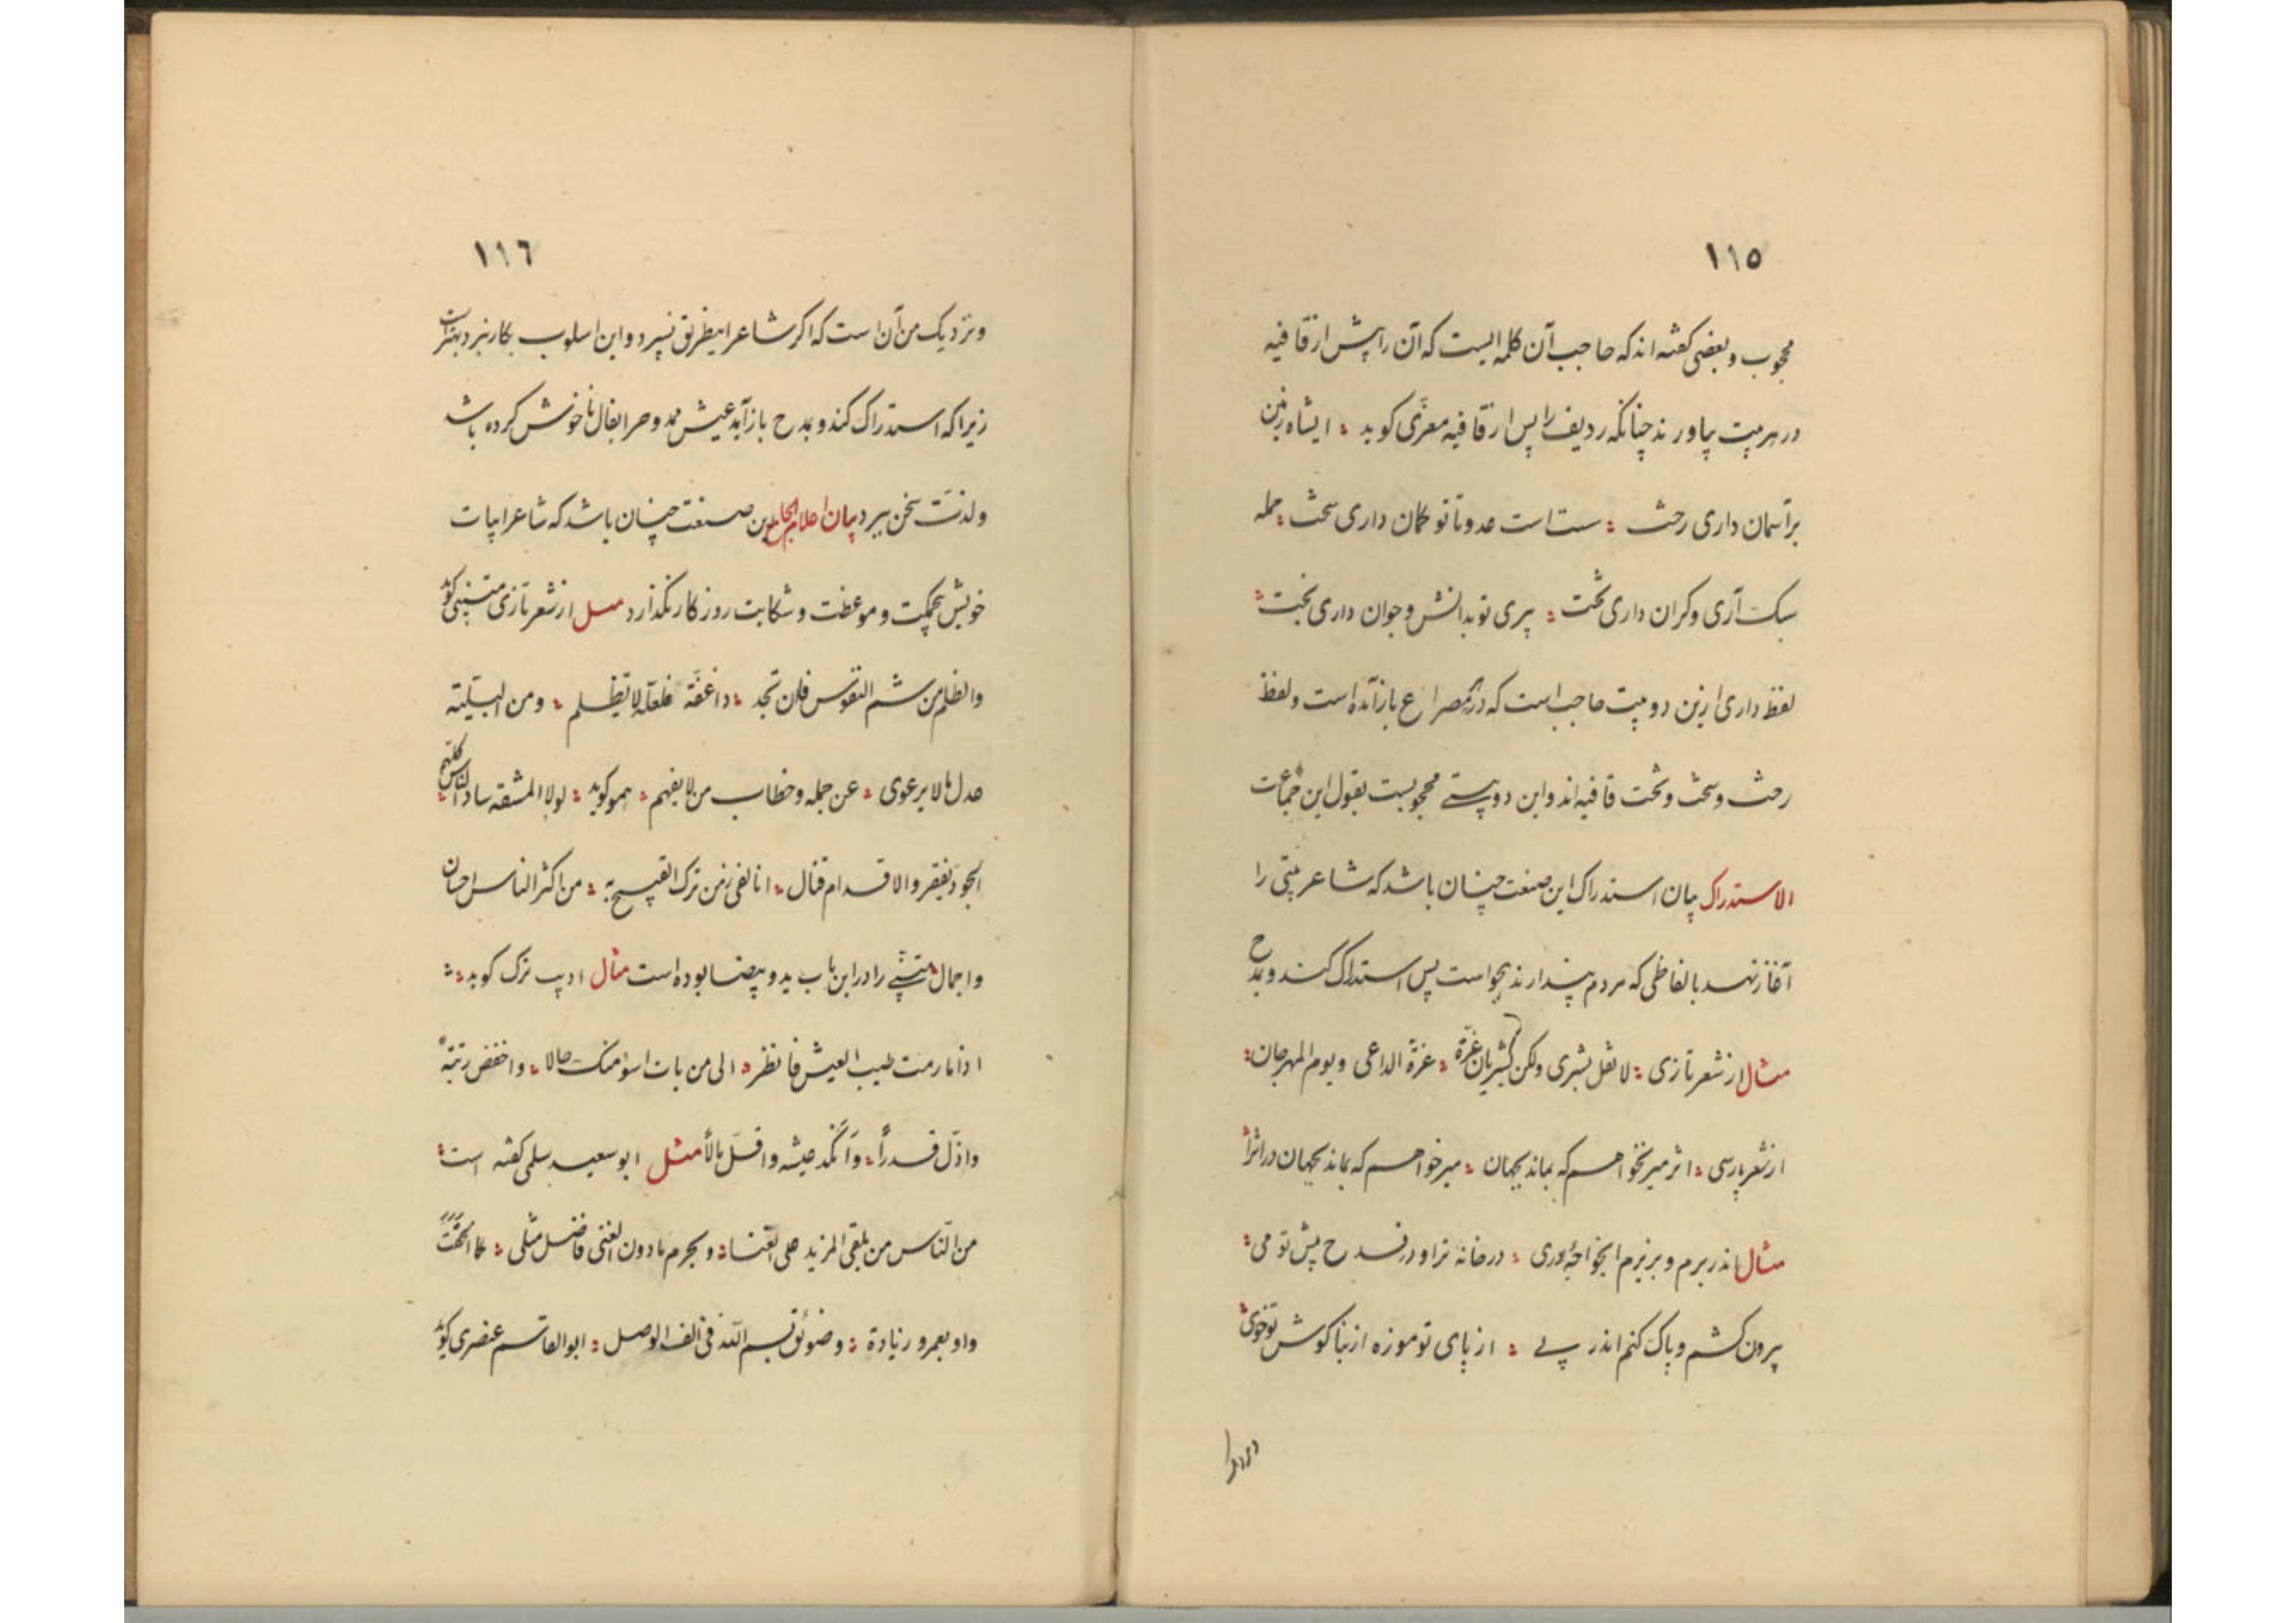 ١١٥
محجوب و بعضی کفته اند که حاجب آن کلمه ایست که آن را پیش از قافیه
در هر بیت بیاورند چنانکه ردیف را پس از قافیه معزّی کوید ؛ ایشاه زمین
بر آسمان داری رخت ؛ سست است عدو تا تو کمان داری سخت ؛ حمله
سبک آری و کران داری تخت ؛ پیری تو بدانش و جوان داری بخت ؛
لفظ داری ازین دو بیت حاجب است که در هر مصراع باز آمده است و لفظ
رخت و سخت و تخت قافیه اند و این دو بیتے محجوبست بقول این جماعت
الاستدراک بیان استدراک این صنعت چنان باشد که شاعر بیتی را
آغاز نهد بالفاظی که مردم پندارند هجو است پس استدراک کند و بمدح
مثال از شعر تازی ؛ لا تقل بشری ولکن بشریان ؛ غرّة الداعی و یوم المهرجان ؛
از شعر پارسی ؛ اثر میر نخواهم که بماند بجهان ؛ میر خواهم که بماند بجهان در اثرا
مثال اندر برم و بریزم ایخواجهٔ وری ؛ در خانه ترا و در قدح پیش تو می ؛
بیرون کشم و پاک کنم اندر پے ؛ از پای تو موزه از بناکوش تو خوی ؛
١١٦
و نزدیک من آن است که اکر شاعر اینطریق نسپرد و این اسلوب بکار نبرد بهتر است
زیرا که استدراک کند و بمدح باز آید عیش ممدوح را بفال ناخوش کرده باشد
و لذت سخن ببرد بیان کلام الجامع این صنعت چنان باشد که شاعر ابیات
خویش بحکمت و موعظت و شکایت روزکار نکذارد مثل از شعر تازی متنبّی کوید
والظلم من شیم النفوس فان تجد ؛ ذا عفّة فلعلّة لا یظلم ؛ ومن البلیّة
عذل ما لا یرعوی ؛ عن جهله وخطاب من لا یفهم ؛ همو کوید ؛ لولا المشقة ساد الناس کلّهم ؛
الجود یفقر والاقدام قتال ؛ انا لفی زمن ترک القبیح به ؛ من اکثر الناس احسان
واجمال متنبّے را در این باب ید و بیضا بوده است مثال ادیب ترک کوید ؛
اذا ما رمت طیب العیش فانظر ؛ الی من بات اسوء منک حالا ؛ واخفض رتبة
واذلّ قدراً ؛ وانکد عیشه واقلّ مالاً مثل ابو سعید سلمی کفته است ؛
من الناس من یلقی المزید علی الغنا ؛ ویحرم ما دون الغنی فاضل مثلی ؛ کما الحقت
واو بعمرو زیادة ؛ بسم اللّه فی الف الوصل ؛ ابوالقاسم عنصری کوید